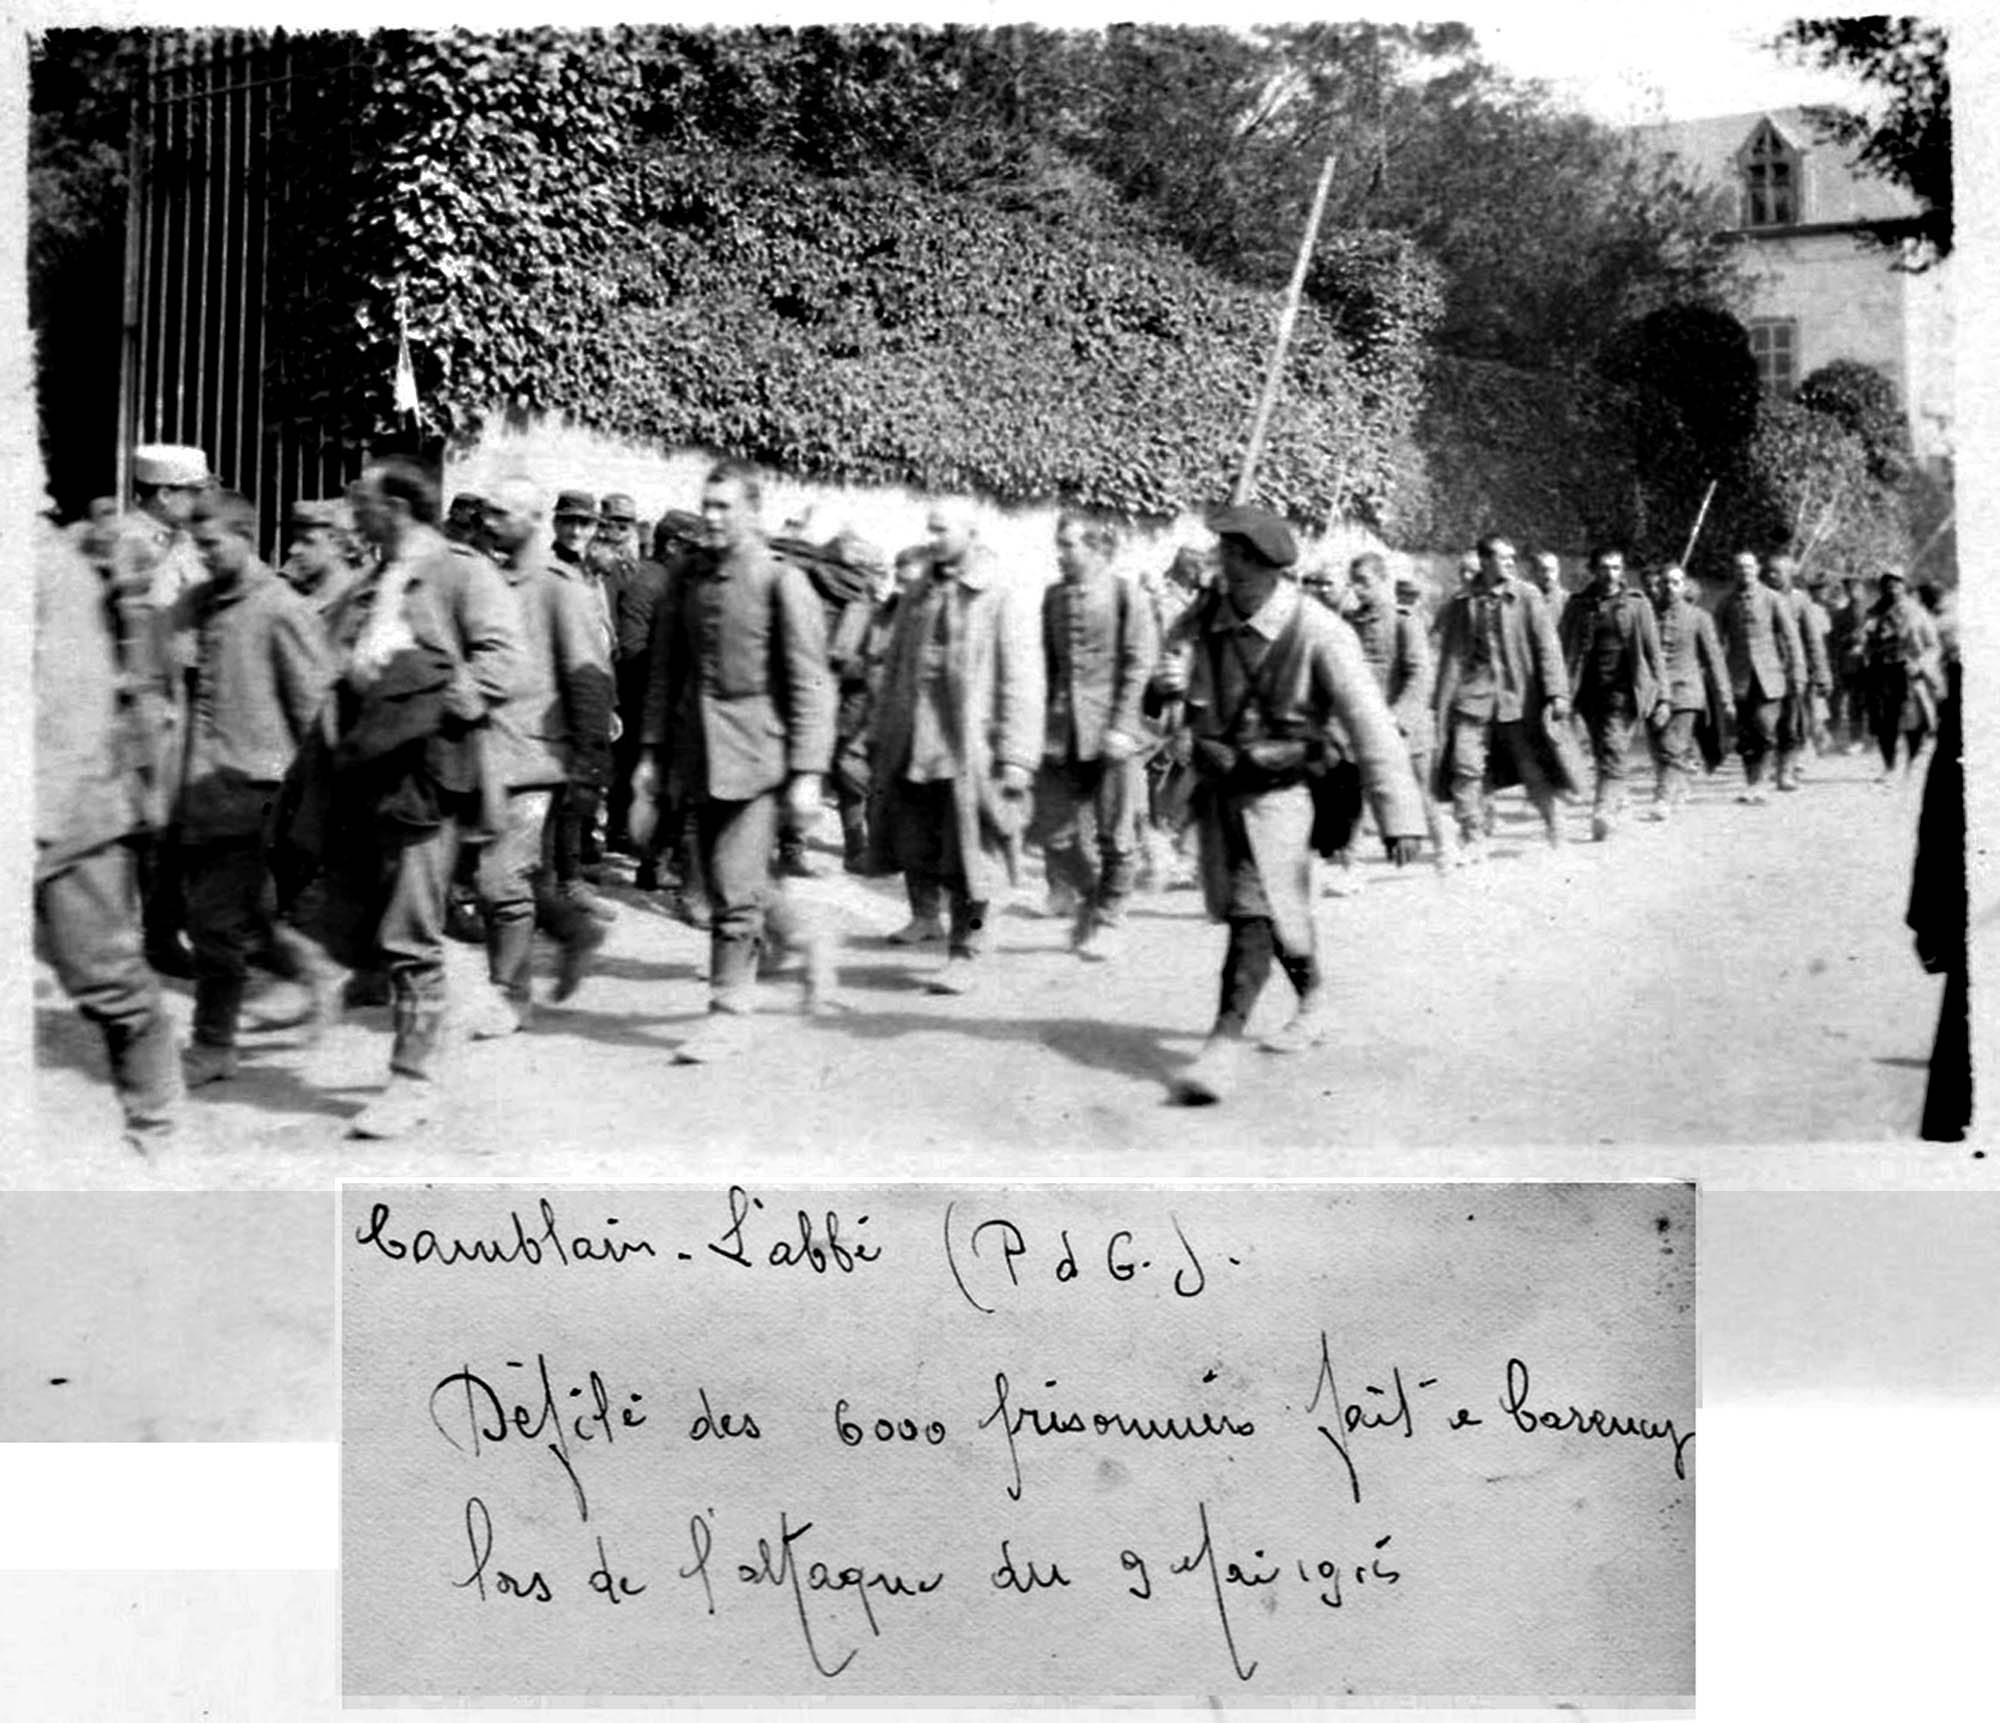 Camblain-L'abbé (P d C.).
Défilé des 6000 prisonniers fait à Carency
lors de l'attaque du 9 Mai 1915